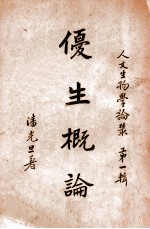 人文生物學論叢 第一輯
優生概論
潘光旦著